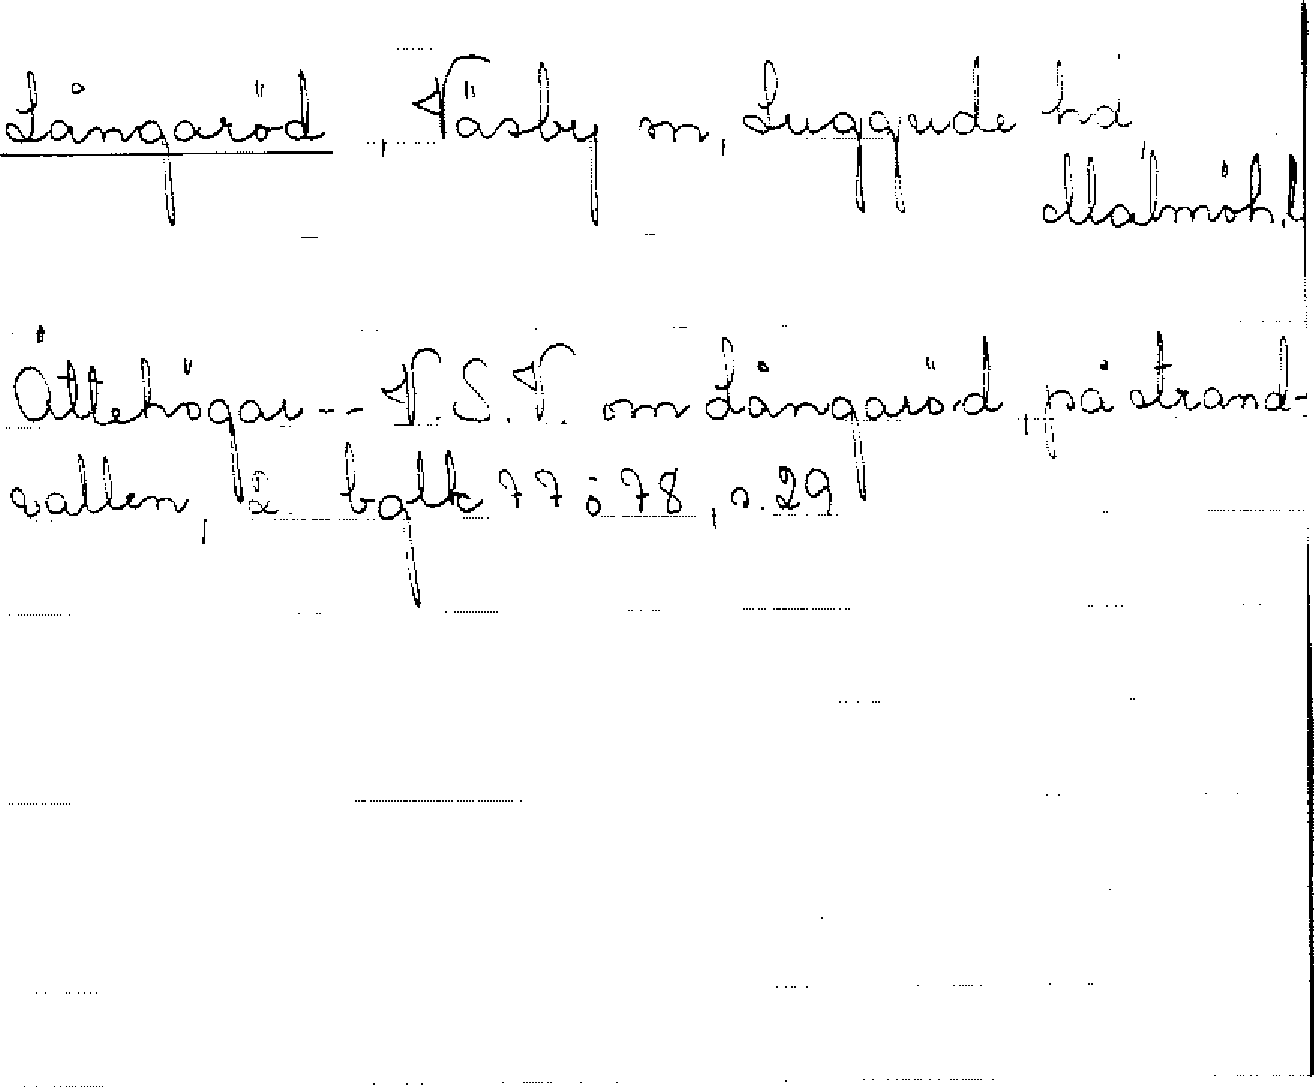 Långaröd, Väsby sn, Luggude hd
Malmöh.l
Ättehögar -- V.S.V. om Långaröd, på strand-
vallen, 2 balk 77 o 78, s. 29